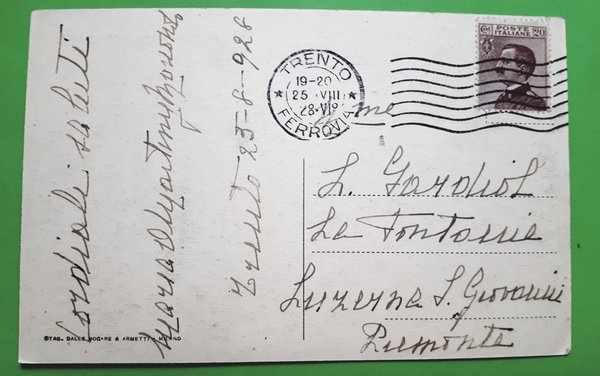 Cordiali saluti
Maria
Trento 25-8-928
TRENTO
19-20
25 VIII
FERROVIA
POSTE ITALIANE 20
L. Gardiol
La Fontaine
Luzerna S. Giovanni
Piemonte
STAB. DALLE NOGARE & ARMETTI - MILANO